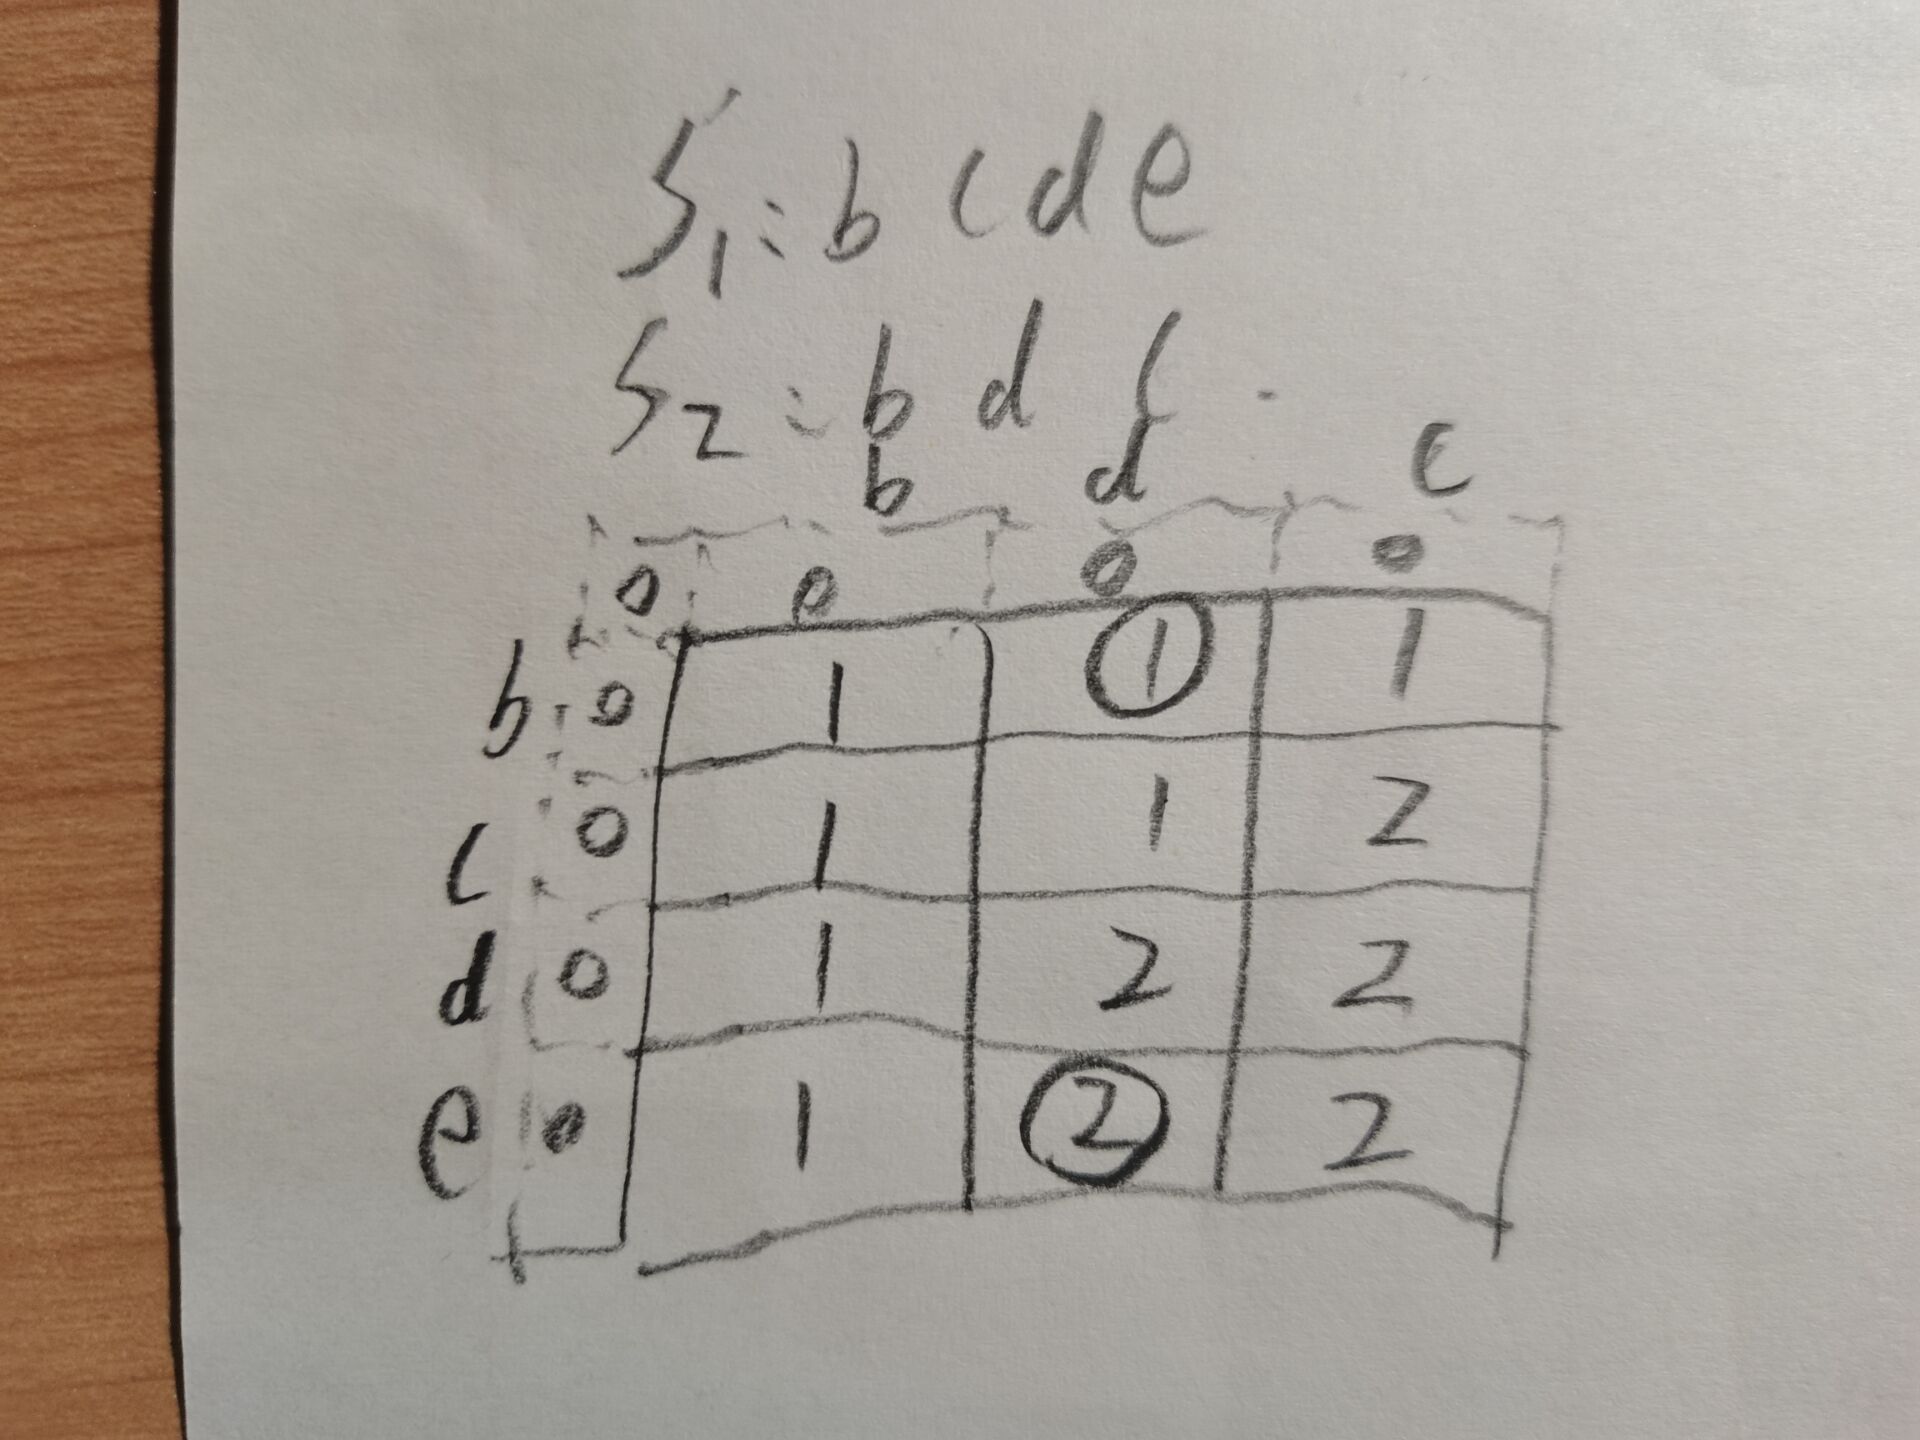 S1: b c d e
S2: b d c
b d c
0 0 0 0
b 0 1 1 1
c 0 1 1 2
d 0 1 2 2
e 0 1 2 2